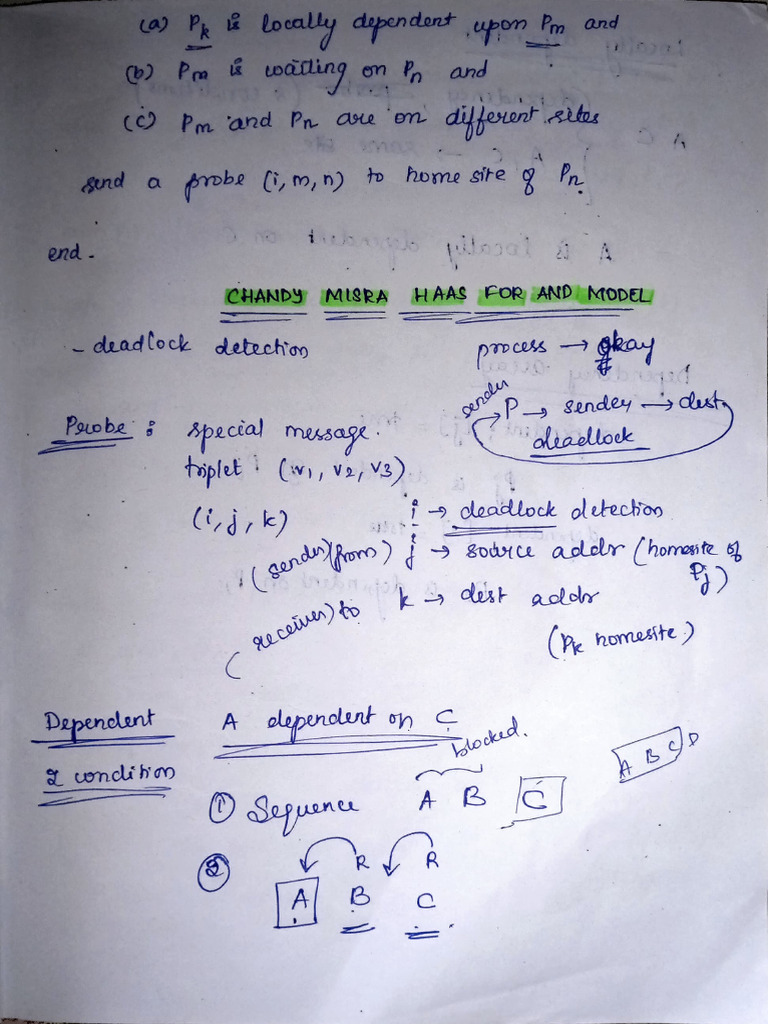 (a) Pk is locally dependent upon Pm and
(b) Pm is waiting on Pn and
(c) Pm and Pn are on different sites
send a probe (i, m, n) to home site of Pn.
end.
CHANDY MISRA HAAS FOR AND MODEL
- deadlock detection
process → okay
sender
P → sender → dest.
deadlock
Probe : special message.
triplet (v1, v2, v3)
(i, j, k)
i → deadlock detection
(sender)(from) j → source addr (homesite of Pj)
(receiver) to k → dest addr
(Pk homesite)
Dependent A dependent on C
2 condition
blocked.
① Sequence A B C
A B C D
② R R
A B C